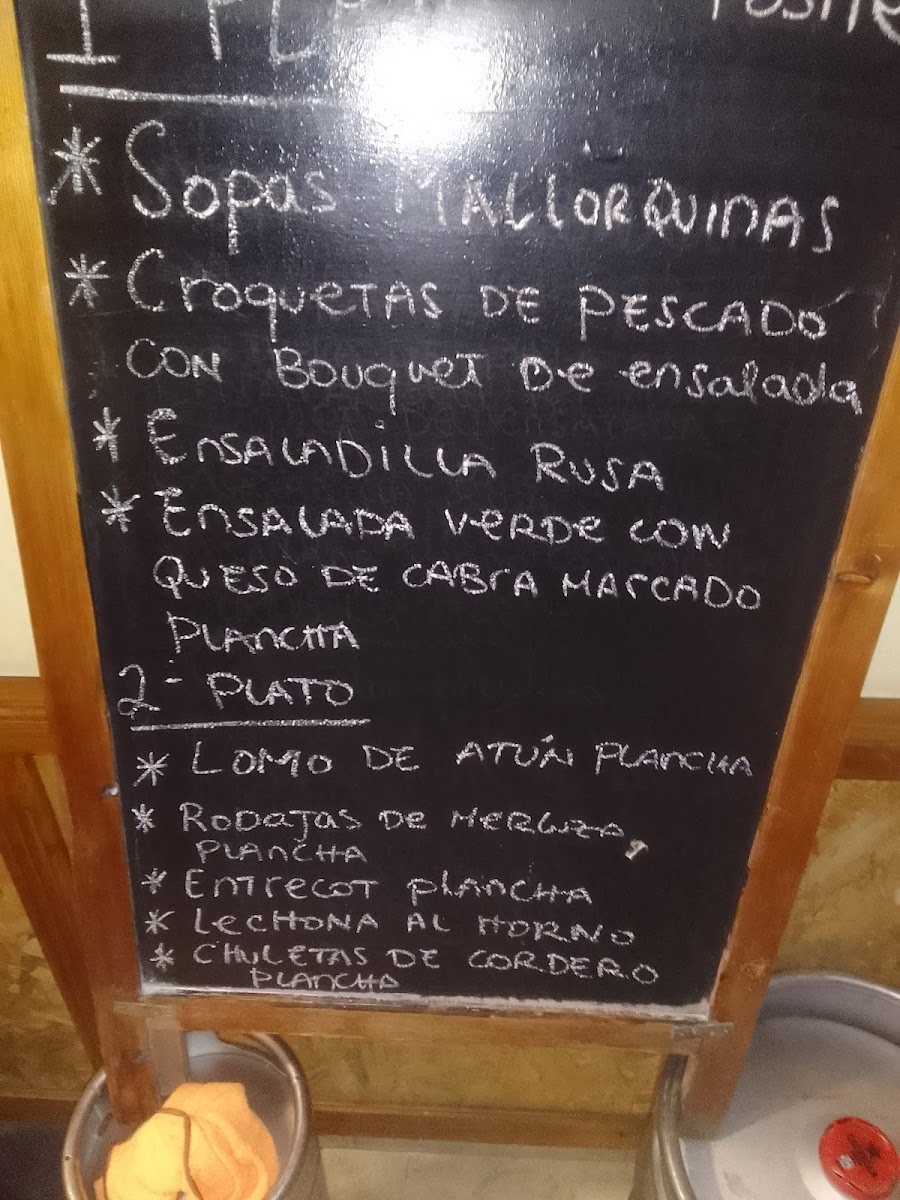 * Sopas MALLORQUINAS
* CroqueTAS DE PESCADO
CON BOUQUET De ensalada
* ENSALADILLA RUSA
* ENSALADA VerDe CON
QUESO DE CABrA MArCADO
PLANCHA
2º PLATO
* LOMO DE ATÚN PLANCHA
* RODAJAS DE MERLUZA
PLANCHA
* ENTRECOT PLANCHA
* LeCHONA AL HORNO
* CHULETAS DE CORDERO
PLANCHA